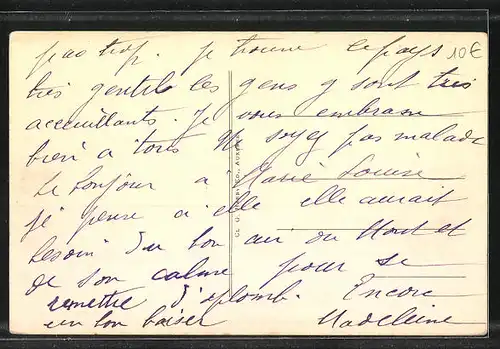 pas trop. je trouve le pays
très gentil les gens y sont très
acceuillants. Je vous embrasse
bien à tous Ne soyez pas malade
Le bonjour à Marie Louise
je pense à elle elle aurait
besoin du bon air du Mont et
de son calme pour se
remettre d'aplomb. Encore
un bon baiser Madeleine
10€